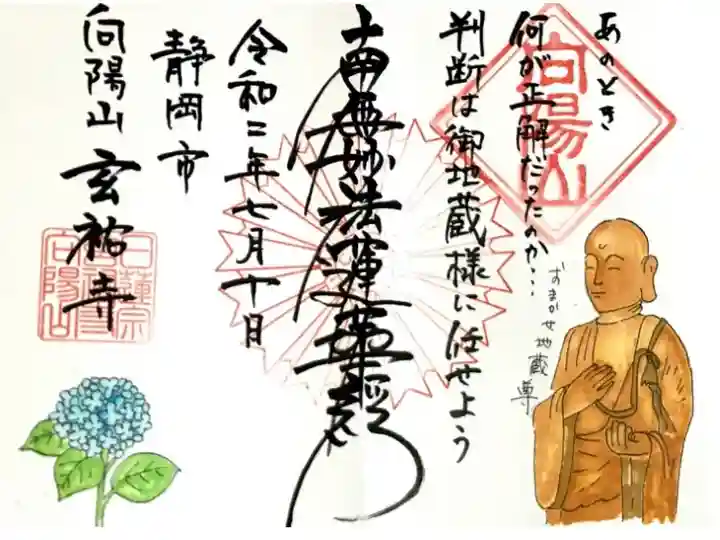 向陽山
あのとき
何が正解だったのか…
判断は御地蔵様に任せよう
おまかせ地蔵尊
南無妙法蓮華経
令和二年七月十日
静岡市
向陽山 玄祐寺
日蓮宗
玄祐寺
向陽山